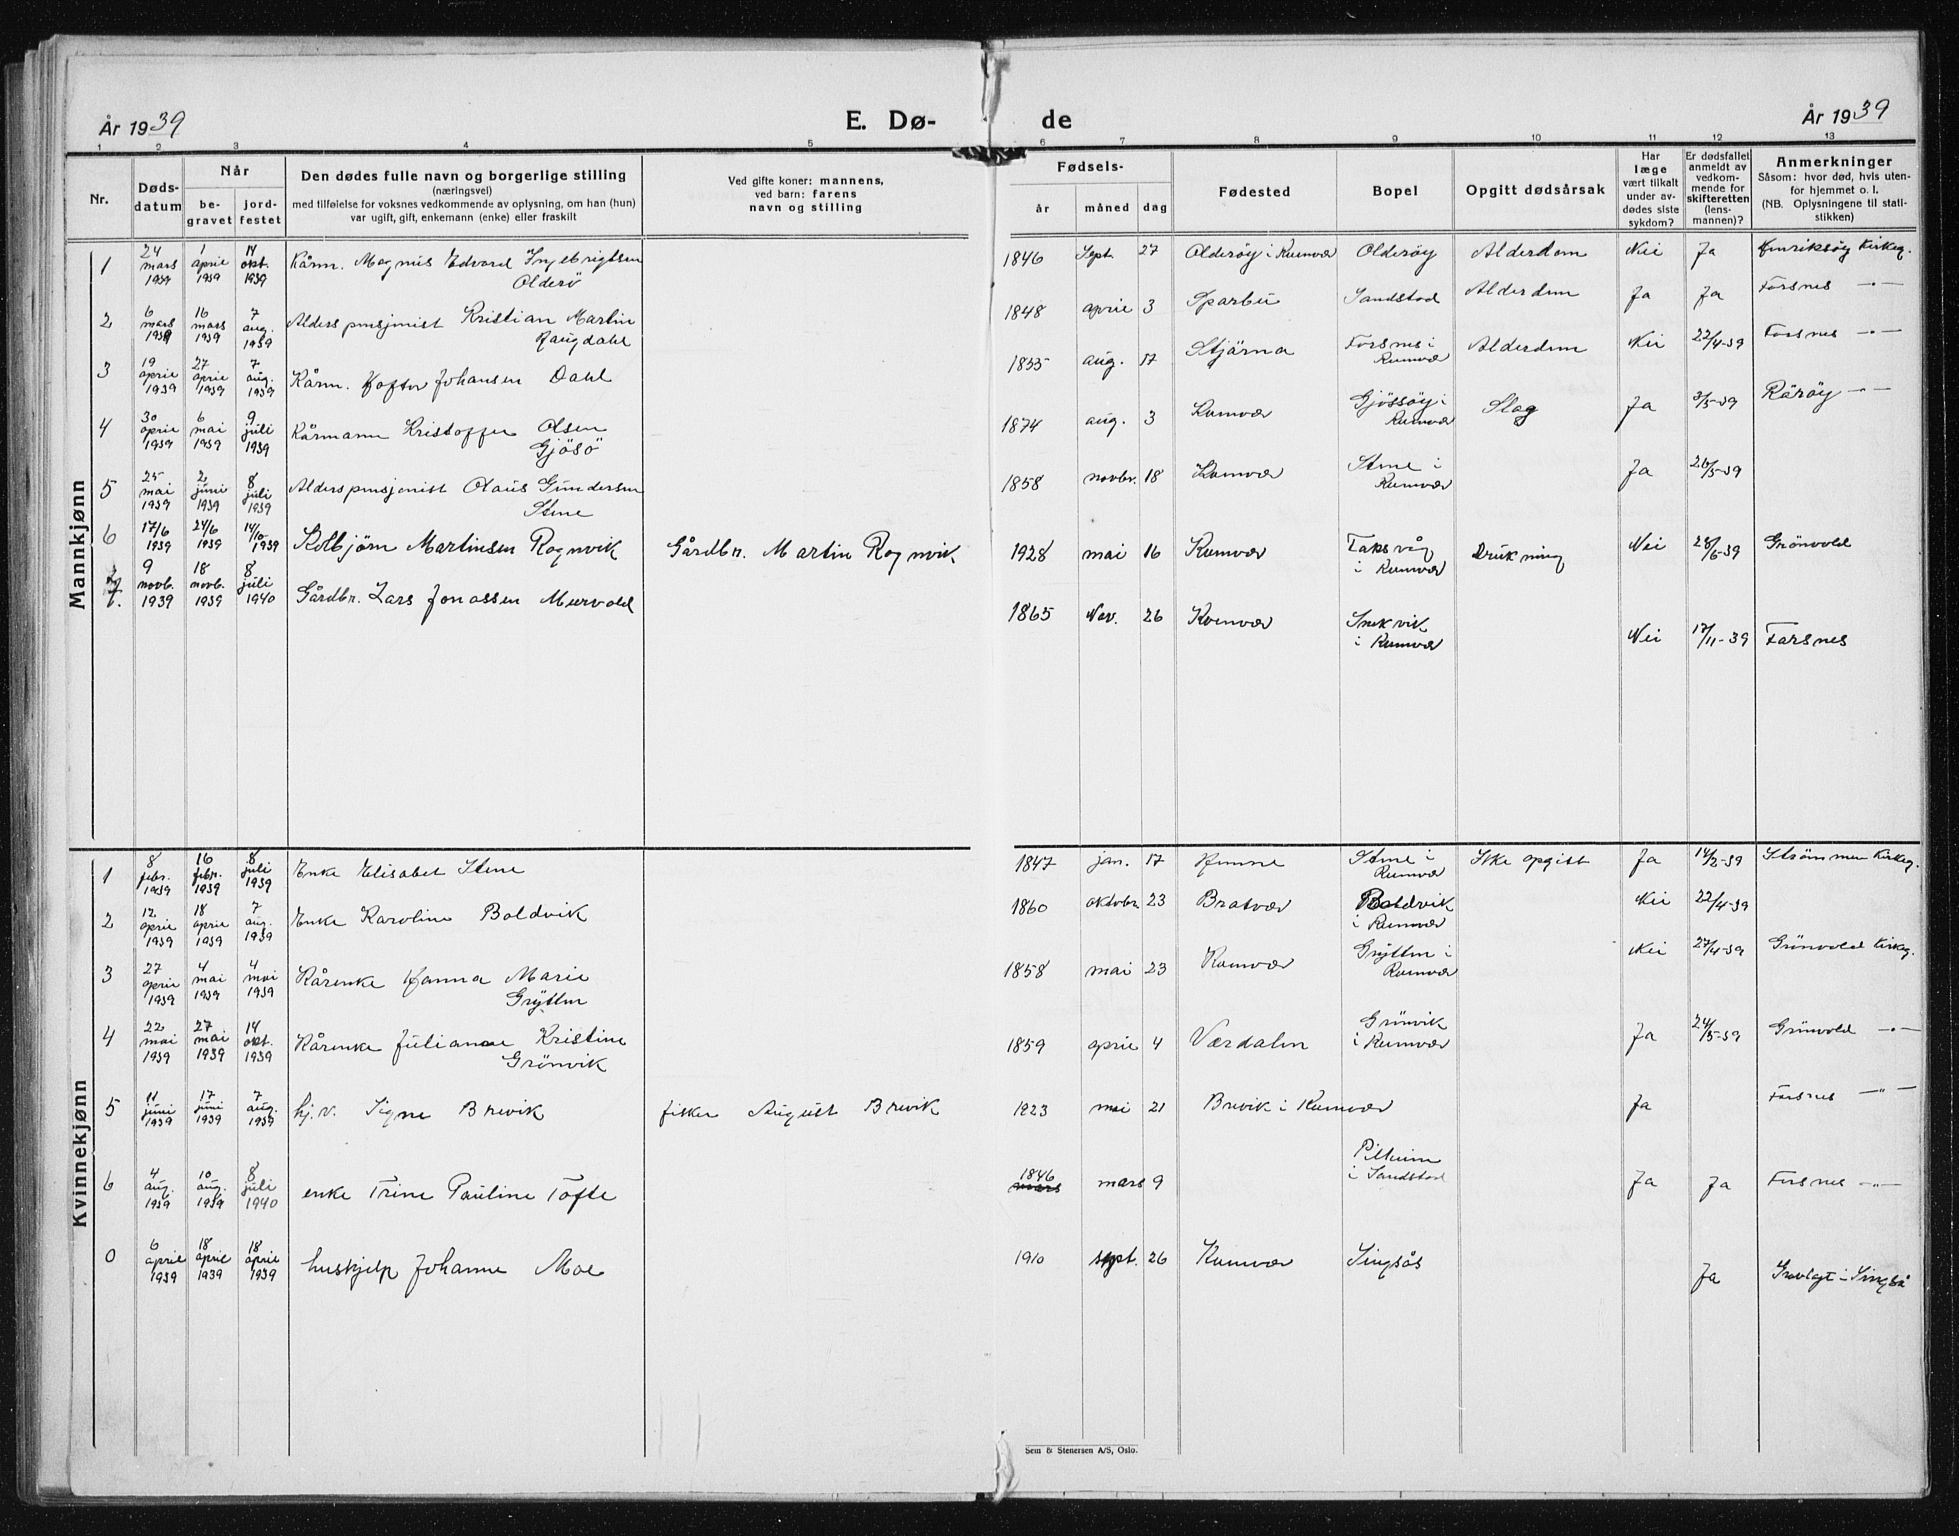 År 1939
E. Dø-
de
År 1939
1 2 3 4 5 6 7 8 9 10 11 12 13
Nr.
Døds-
datum
Når
be-
gravet
jord-
festet
Den dødes fulle navn og borgerlige stilling
(næringsvei)
med tilføielse for voksnes vedkommende av oplysning, om han (hun)
var ugift, gift, enkemann (enke) eller fraskilt
Ved gifte koner: mannens,
ved barn: farens
navn og stilling
Fødsels-
år måned dag
Fødested
Bopel
Opgitt dødsårsak
Har
læge
vært tilkalt
under av-
dødes siste
sykdom?
Er dødsfallet
anmeldt av
vedkom-
mende for
skifteretten
(lens-
mannen)?
Anmerkninger
Såsom: hvor død, hvis uten-
for hjemmet o. l.
(NB. Oplysningene til stati-
stikken)
Mannkjønn
1 24 mars 1939 1 april 1939 14 okt. 1939 Kårm. Magnus Edvard Ingebrigtsen
Olderø
1846 Sept. 27 Olderøy i Kvenvær Olderøy Alderdom Nei Ja Henriksøy kirkeg.
2 6 mars 1939 16 mars 1939 7 aug. 1939 Alderspensjonist Kristian Martin
Raugdahl
1848 april 3 Sparbu Sandstad Alderdom Ja Ja Forsnes —"—
3 19 april 1939 27 april 1939 7 aug. 1939 Kårm. Hoftor Johansen Dahl
1855 aug. 17 Stjørna Forsnes i
Kvenvær Alderdom Nei 22/4-39 Forsnes —"—
4 30 april 1939 6 mai 1939 9 juli 1939 Kårmann Kristoffer Olsen
Gjøsø
1874 aug. 3 Kvenvær Gjøssøy i
Kvenvær Slag Ja 3/5-39 Rårøy —"—
5 25 mai 1939 2 juni 1939 8 juli 1939 Alderspensjonist Olaus Gundersen
Stene
1858 novbr. 18 Kvenvær Stene i
Kvenvær Ja 26/5-39
6 17/6 1939 24/6 1939 14/10 1939 Kolbjørn Martinsen Rognvik Gårdbr. Martin Rognvik
1928 mai 16 Kvenvær Taksvåg
i Kvenvær Drukning Nei 28/6-39 Grønvold
7. 9 novb. 1939 18 novb. 1939 8 juli 1940 Gårdbr. Lars Jonassen Murvold
1865 Nov. 26 Kvenvær Snekvik
i Kvenvær Nei 17/11-39 Forsnes
Kvinnekjønn
1 8 febr. 1939 16 febr. 1939 8 juli 1939 Enke Elisabet Stene
1847 jan. 17 Hemne Stene i
Kvenvær Ikke opgitt Ja 14/2-39 Strømmen kirkeg.
2 12 april 1939 18 april 1939 7 aug. 1939 Enke Karoline Boldvik
1860 oktobr. 23 Bratvær Boldvik
i Kvenvær Nei 22/4-39
3 27 april 1939 4 mai 1939 4 mai 1939 Kårenke Hanna Marie
Grytten
1858 mai 23 Kvenvær Grytten i
Kvenvær Nei 27/4-39 Grønvold kirkeg.
4 22 mai 1939 27 mai 1939 14 okt. 1939 Kårenke Juliane Kristine
Grønvik
1859 april 4 Værdalen Grønvik
i Kvenvær Ja 24/5-39 Grønvold —"—
5 11 juni 1939 17 juni 1939 7 aug. 1939 hj.v. Signe Brevik fisker August Brevik
1923 mai 21 Brevik i Kvenvær Ja Forsnes —"—
6 4 aug. 1939 10 aug. 1939 8 juli 1940 enke Trine Pauline Tofte
1846 mars mars 9 Pilheim
i Sandstad Ja Ja Forsnes —"—
0 6 april 1939 18 april 1939 18 april 1939 huskjelp Johanne Moe
1910 sept. 26 Kvenvær Singsås Ja Gravlagt i Singså
Sem & Stenersen A/S, Oslo.